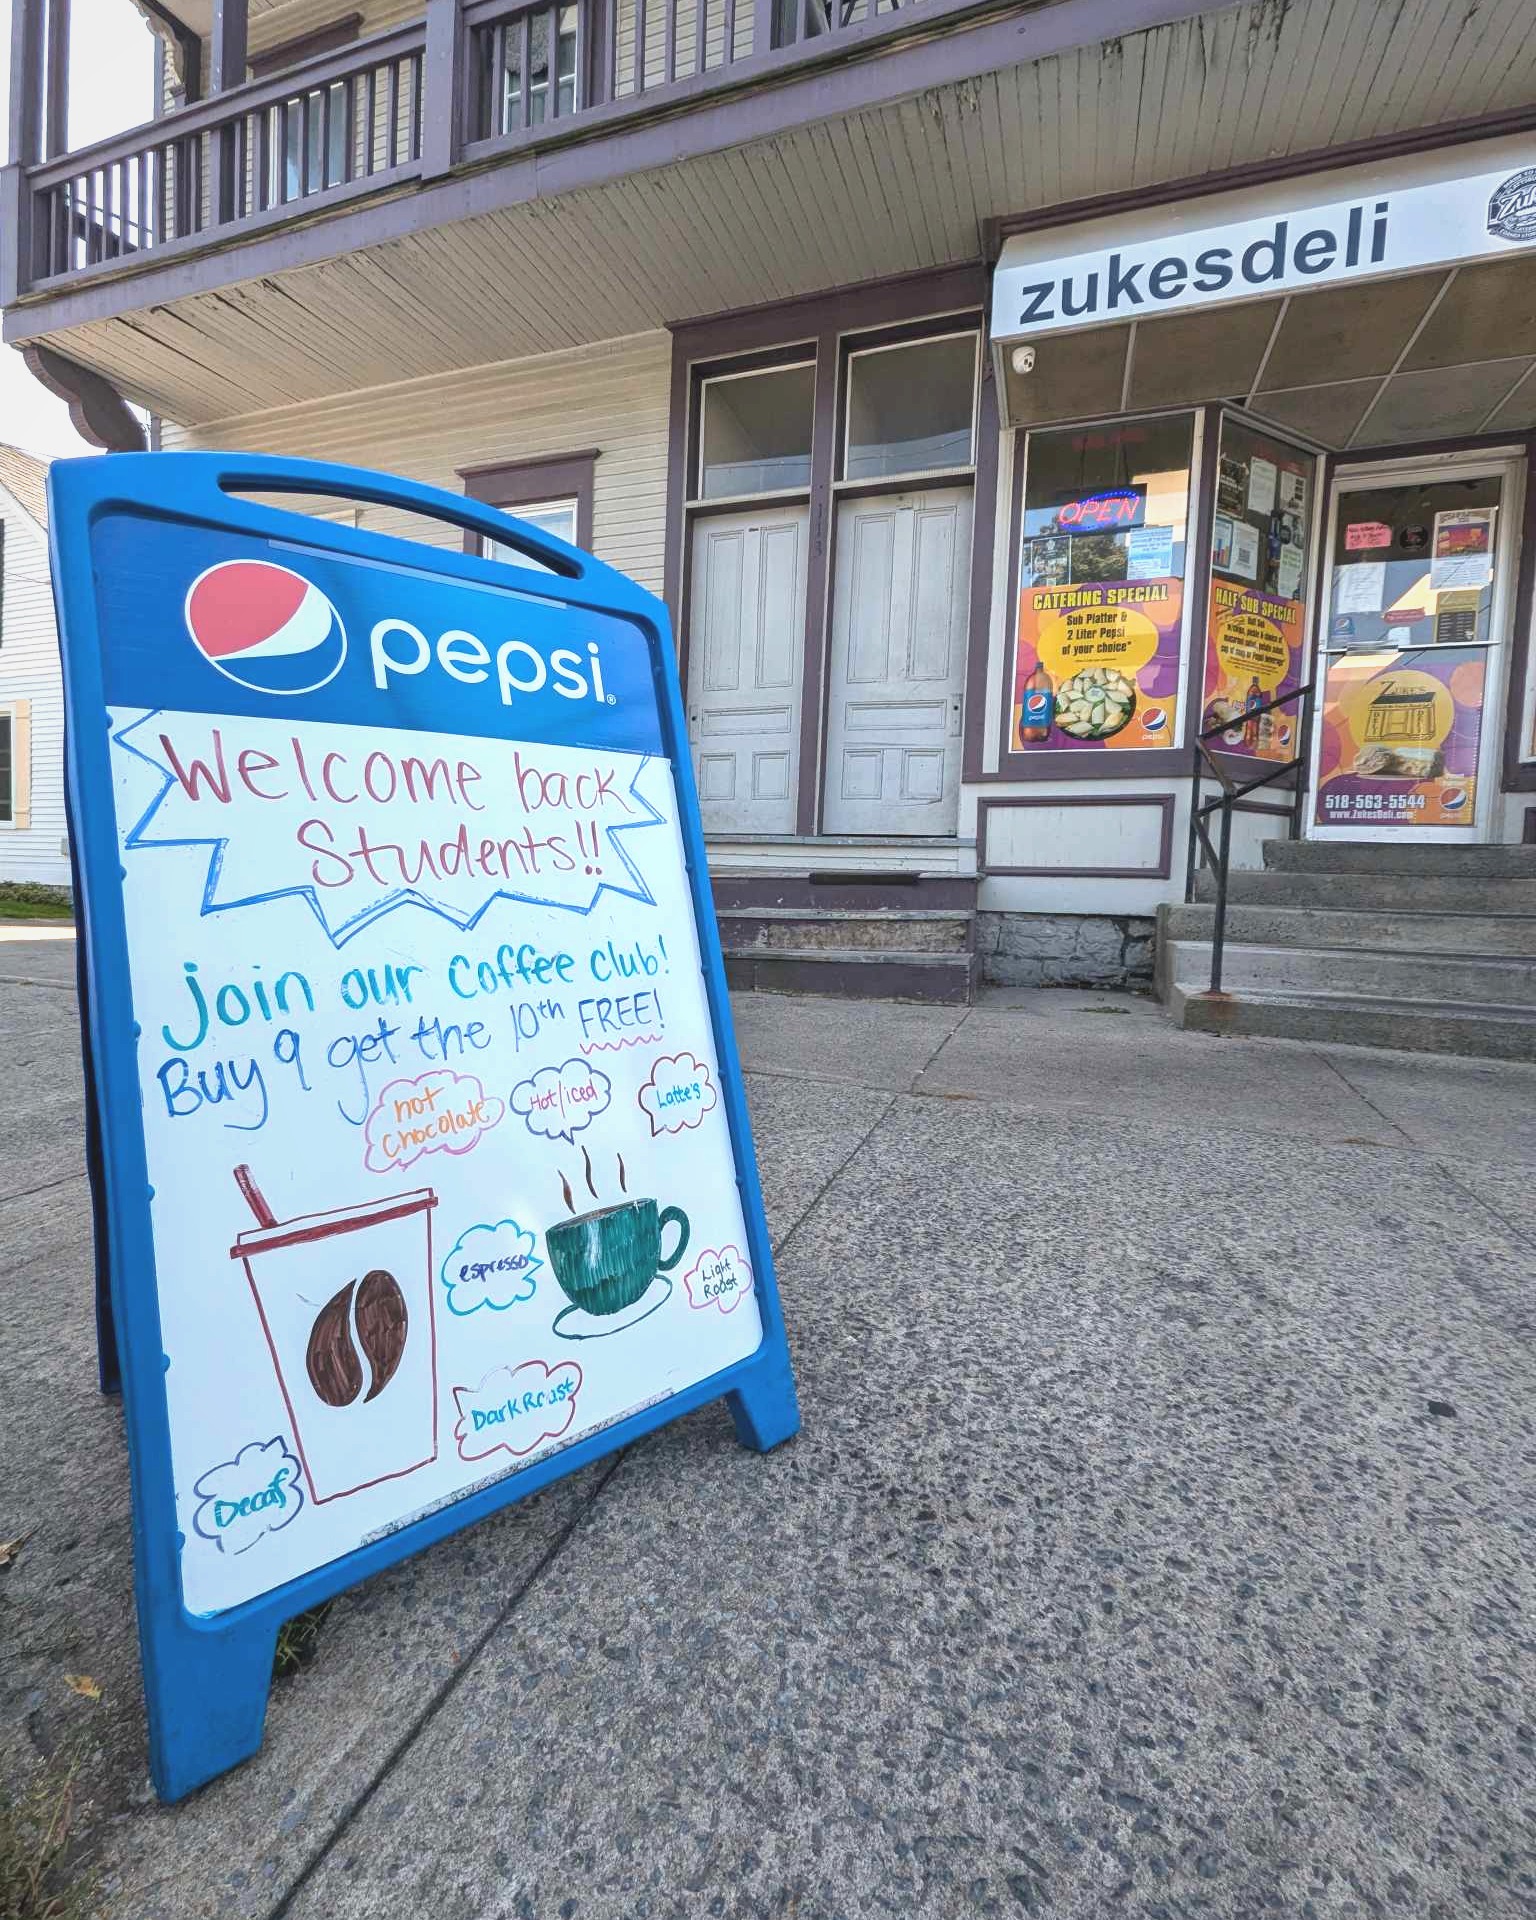 pepsi
Welcome back
Students!!
join our Coffee club!
Buy 9 get the 10th FREE!
hot
Chocolate
Hot/iced
Latte's
espresso
Light
Roast
Dark Roast
Decaf
zukesdeli
113
OPEN
CATERING SPECIAL
Sub Platter &
2 Liter Pepsi
of your choice*
pepsi
HALF SUB SPECIAL
Half Sub
ZUKE'S
DELI
518-563-5544
www.ZukesDeli.com
pepsi